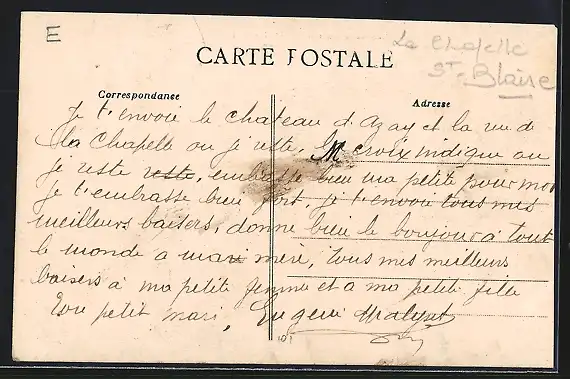 E
La Chapelle
St-Blaise
CARTE POSTALE
Correspondance
Adresse
Je t'envoie le chateau d'Azay et la vue de
la Chapelle ou je reste, la croix indique ou
je reste reste, embrasse bien ma petite pour moi
Je t'embrasse bien fort, je t'envoie tous mes
meilleurs baisers, donne bien le bonjour a tout
le monde a mari mère, tous mes meilleurs
baisers à ma petite femme et a ma petite fille
Ton petit mari, Eugene
101